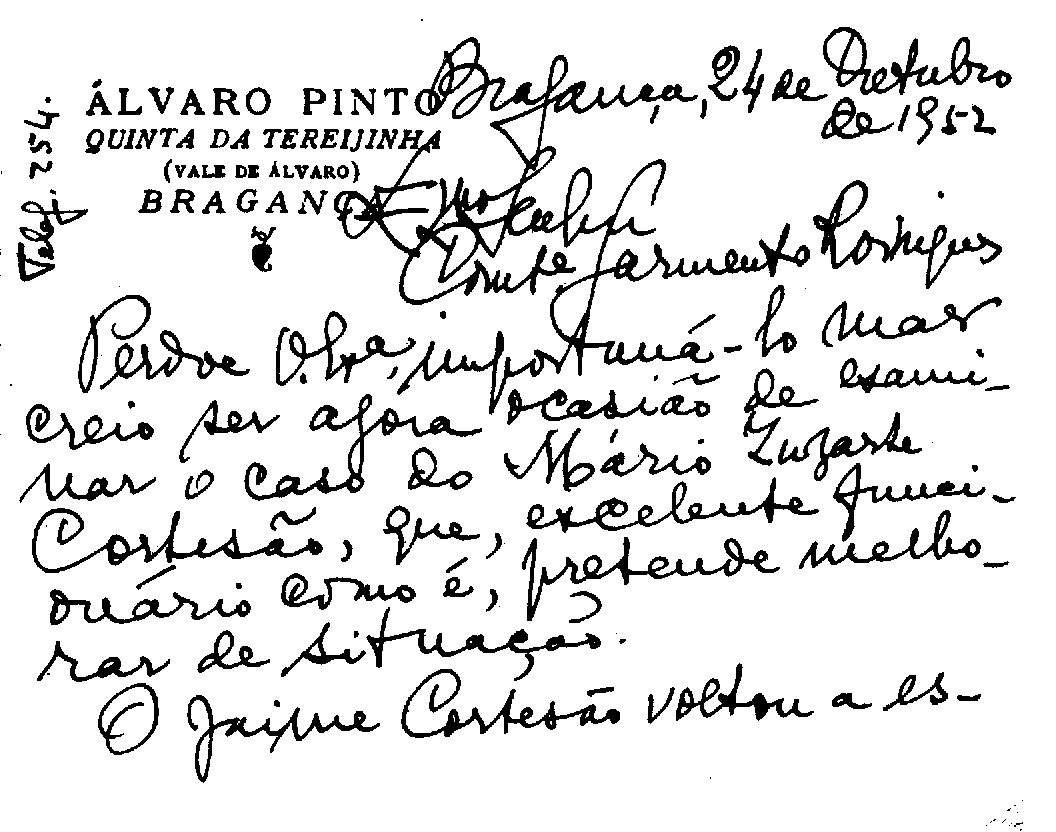 Telef. 254.
ÁLVARO PINTO
QUINTA DA TEREIJINHA
(VALE DE ÁLVARO)
BRAGANÇA
Bragança, 24 de Outubro
de 1952
Exmo Senhor
Comte. Sarmento Rodrigues
Perdoe V. Exa. importuná-lo mas
creio ser agora ocasião de exami-
nar o caso do Mário Zuzarte
Cortesão, que, excelente funci-
onário como é, pretende melho-
rar de situação.
O Jaime Cortesão voltou a es-